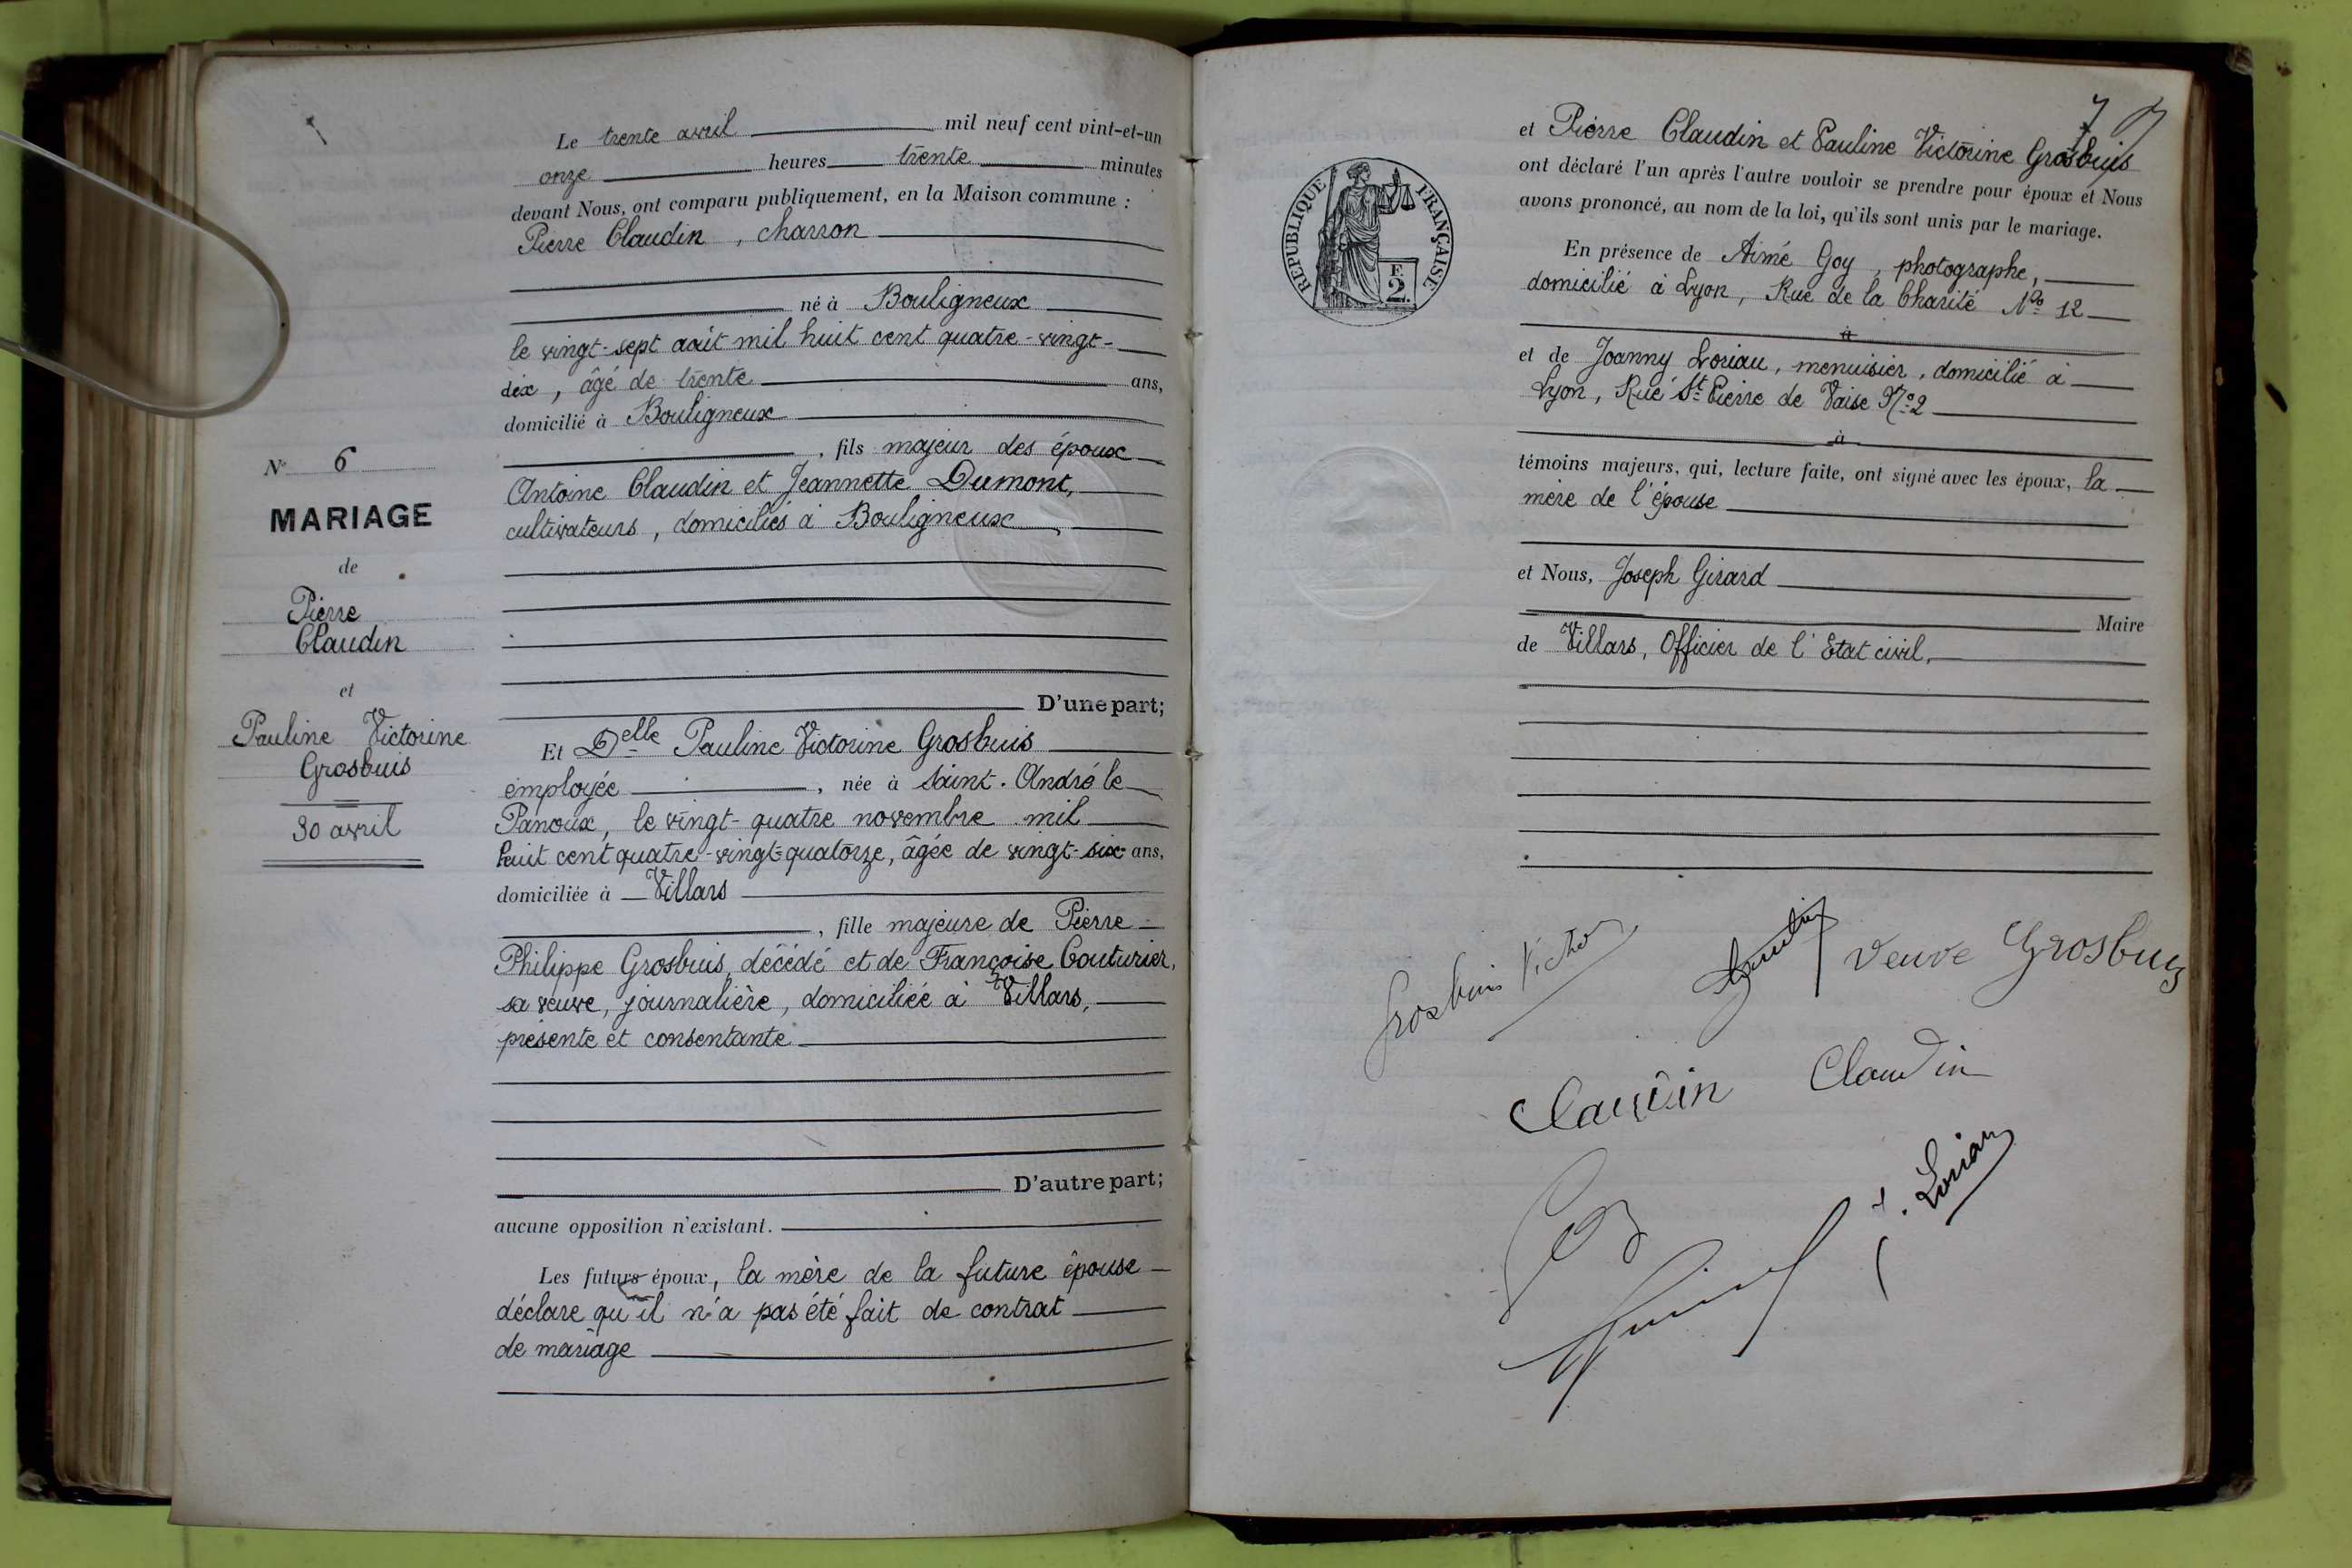 N° 6
MARIAGE
de
Pierre
Claudin
et
Pauline Victorine
Grosbuis
30 avril
Le trente avril mil neuf cent vint-et-un
onze heures trente minutes
devant Nous, ont comparu publiquement, en la Maison commune :
Pierre Claudin, charron
né à Bouligneux
le vingt-sept août mil huit cent quatre-vingt-
dix, âgé de trente ans,
domicilié à Bouligneux
, fils majeur des époux
Antoine Claudin et Jeannette Dumont,
cultivateurs, domiciliés à Bouligneux
D'une part;
Et Delle Pauline Victorine Grosbuis
employée, née à Saint-André le
Panoux, le vingt-quatre novembre mil
huit cent quatre-vingt-quatorze, âgée de vingt-six ans,
domiciliée à Villars
, fille majeure de Pierre
Philippe Grosbuis, décédé et de Françoise Couturier,
sa veuve, journalière, domiciliée à Villars,
présente et consentante
D'autre part;
aucune opposition n'existant.
Les futurs époux, la mère de la future épouse
déclare qu'il n'a pas été fait de contrat
de mariage
7
et Pierre Claudin et Pauline Victorine Grosbuis
ont déclaré l'un après l'autre vouloir se prendre pour époux et Nous
avons prononcé, au nom de la loi, qu'ils sont unis par le mariage.
REPUBLIQUE FRANÇAISE
F.
2.
En présence de Aimé Goy, photographe,
domicilié à Lyon, Rue de la Charité No 12
à
et de Joanny Loriau, menuisier, domicilié à
Lyon, Rue St Pierre de Vaise No 2
à
témoins majeurs, qui, lecture faite, ont signé avec les époux, la
mère de l'épouse
et Nous, Joseph Girard
Maire
de Villars, Officier de l'Etat civil,
Grosbuis Victor
Veuve Grosbuis
Claudin Claudin
J. Loriau